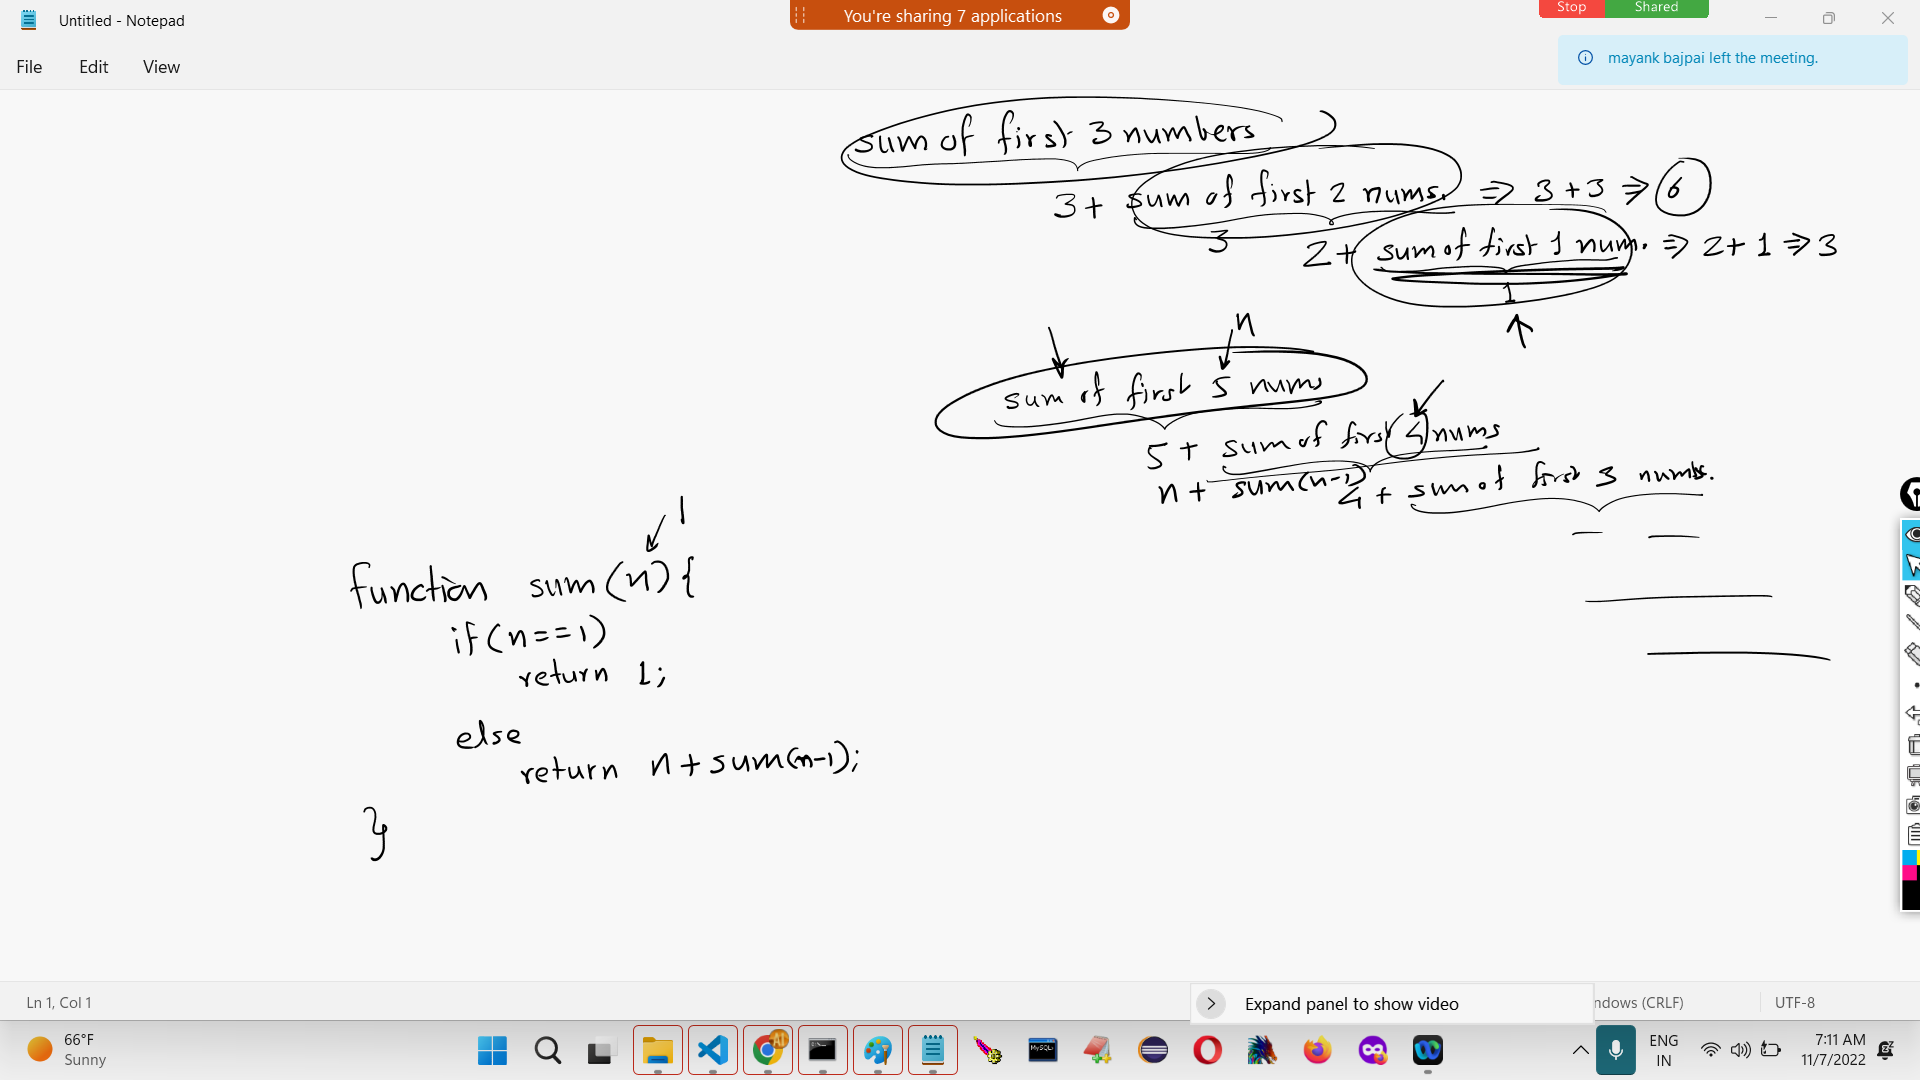 Untitled - Notepad
You're sharing 7 applications
Stop Shared
File Edit View
mayank bajpai left the meeting.
sum of first 3 numbers
3 + sum of first 2 nums. => 3 + 3 => 6
3
2 + sum of first 1 num. => 2 + 1 => 3
1
n
sum of first 5 nums
5 + sum of first 4 nums
n + sum(n-1)
4 + sum of first 3 numbs.
1
function sum(n){
if(n==1)
return 1;
else
return n + sum(n-1);
}
Ln 1, Col 1
Expand panel to show video
ndows (CRLF)
UTF-8
66°F
Sunny
ENG
IN
7:11 AM
11/7/2022